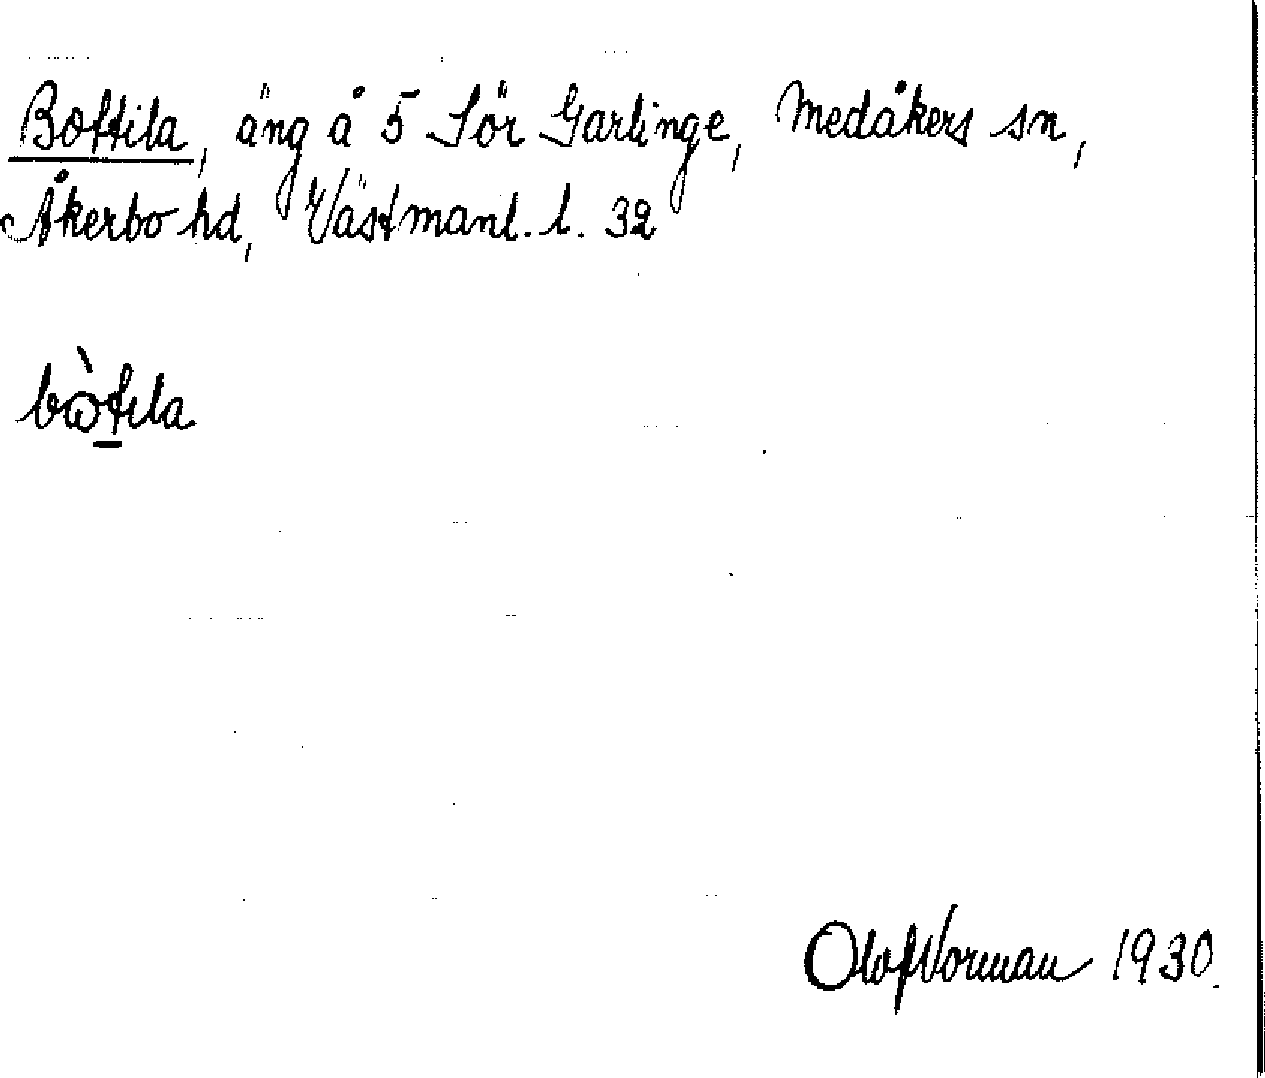 Bottila, äng å 5 Sör Garlinge, Medåkers sn,
Åkerbo hd, Västmanl. l. 32
bòt̲ila
Olof Norman 1930.